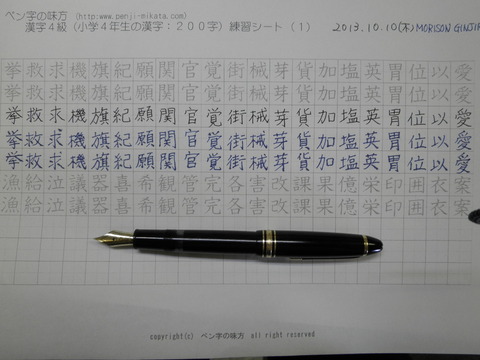 ペン字の味方 (http://www.penji-mikata.com)
漢字４級（小学４年生の漢字：２００字）練習シート（１） 2013.10.10(木) MORISON GINJIR
挙救求機旗紀願関官覚街械芽貨加塩英胃位以愛
挙救求機旗紀願関官覚街械芽貨加塩英胃位以愛
挙救求機旗紀願関官覚街械芽貨加塩英胃位以愛
挙救求機旗紀願関官覚街械芽貨加塩英胃位以愛
挙救求機旗紀願関官覚街械芽貨加塩英胃位以愛
漁給泣議器喜希観管完各害改課果億栄印囲衣案
漁給泣議器喜希観管完各害改課果億栄印囲衣案
copyright(c) ペン字の味方 all right reserved